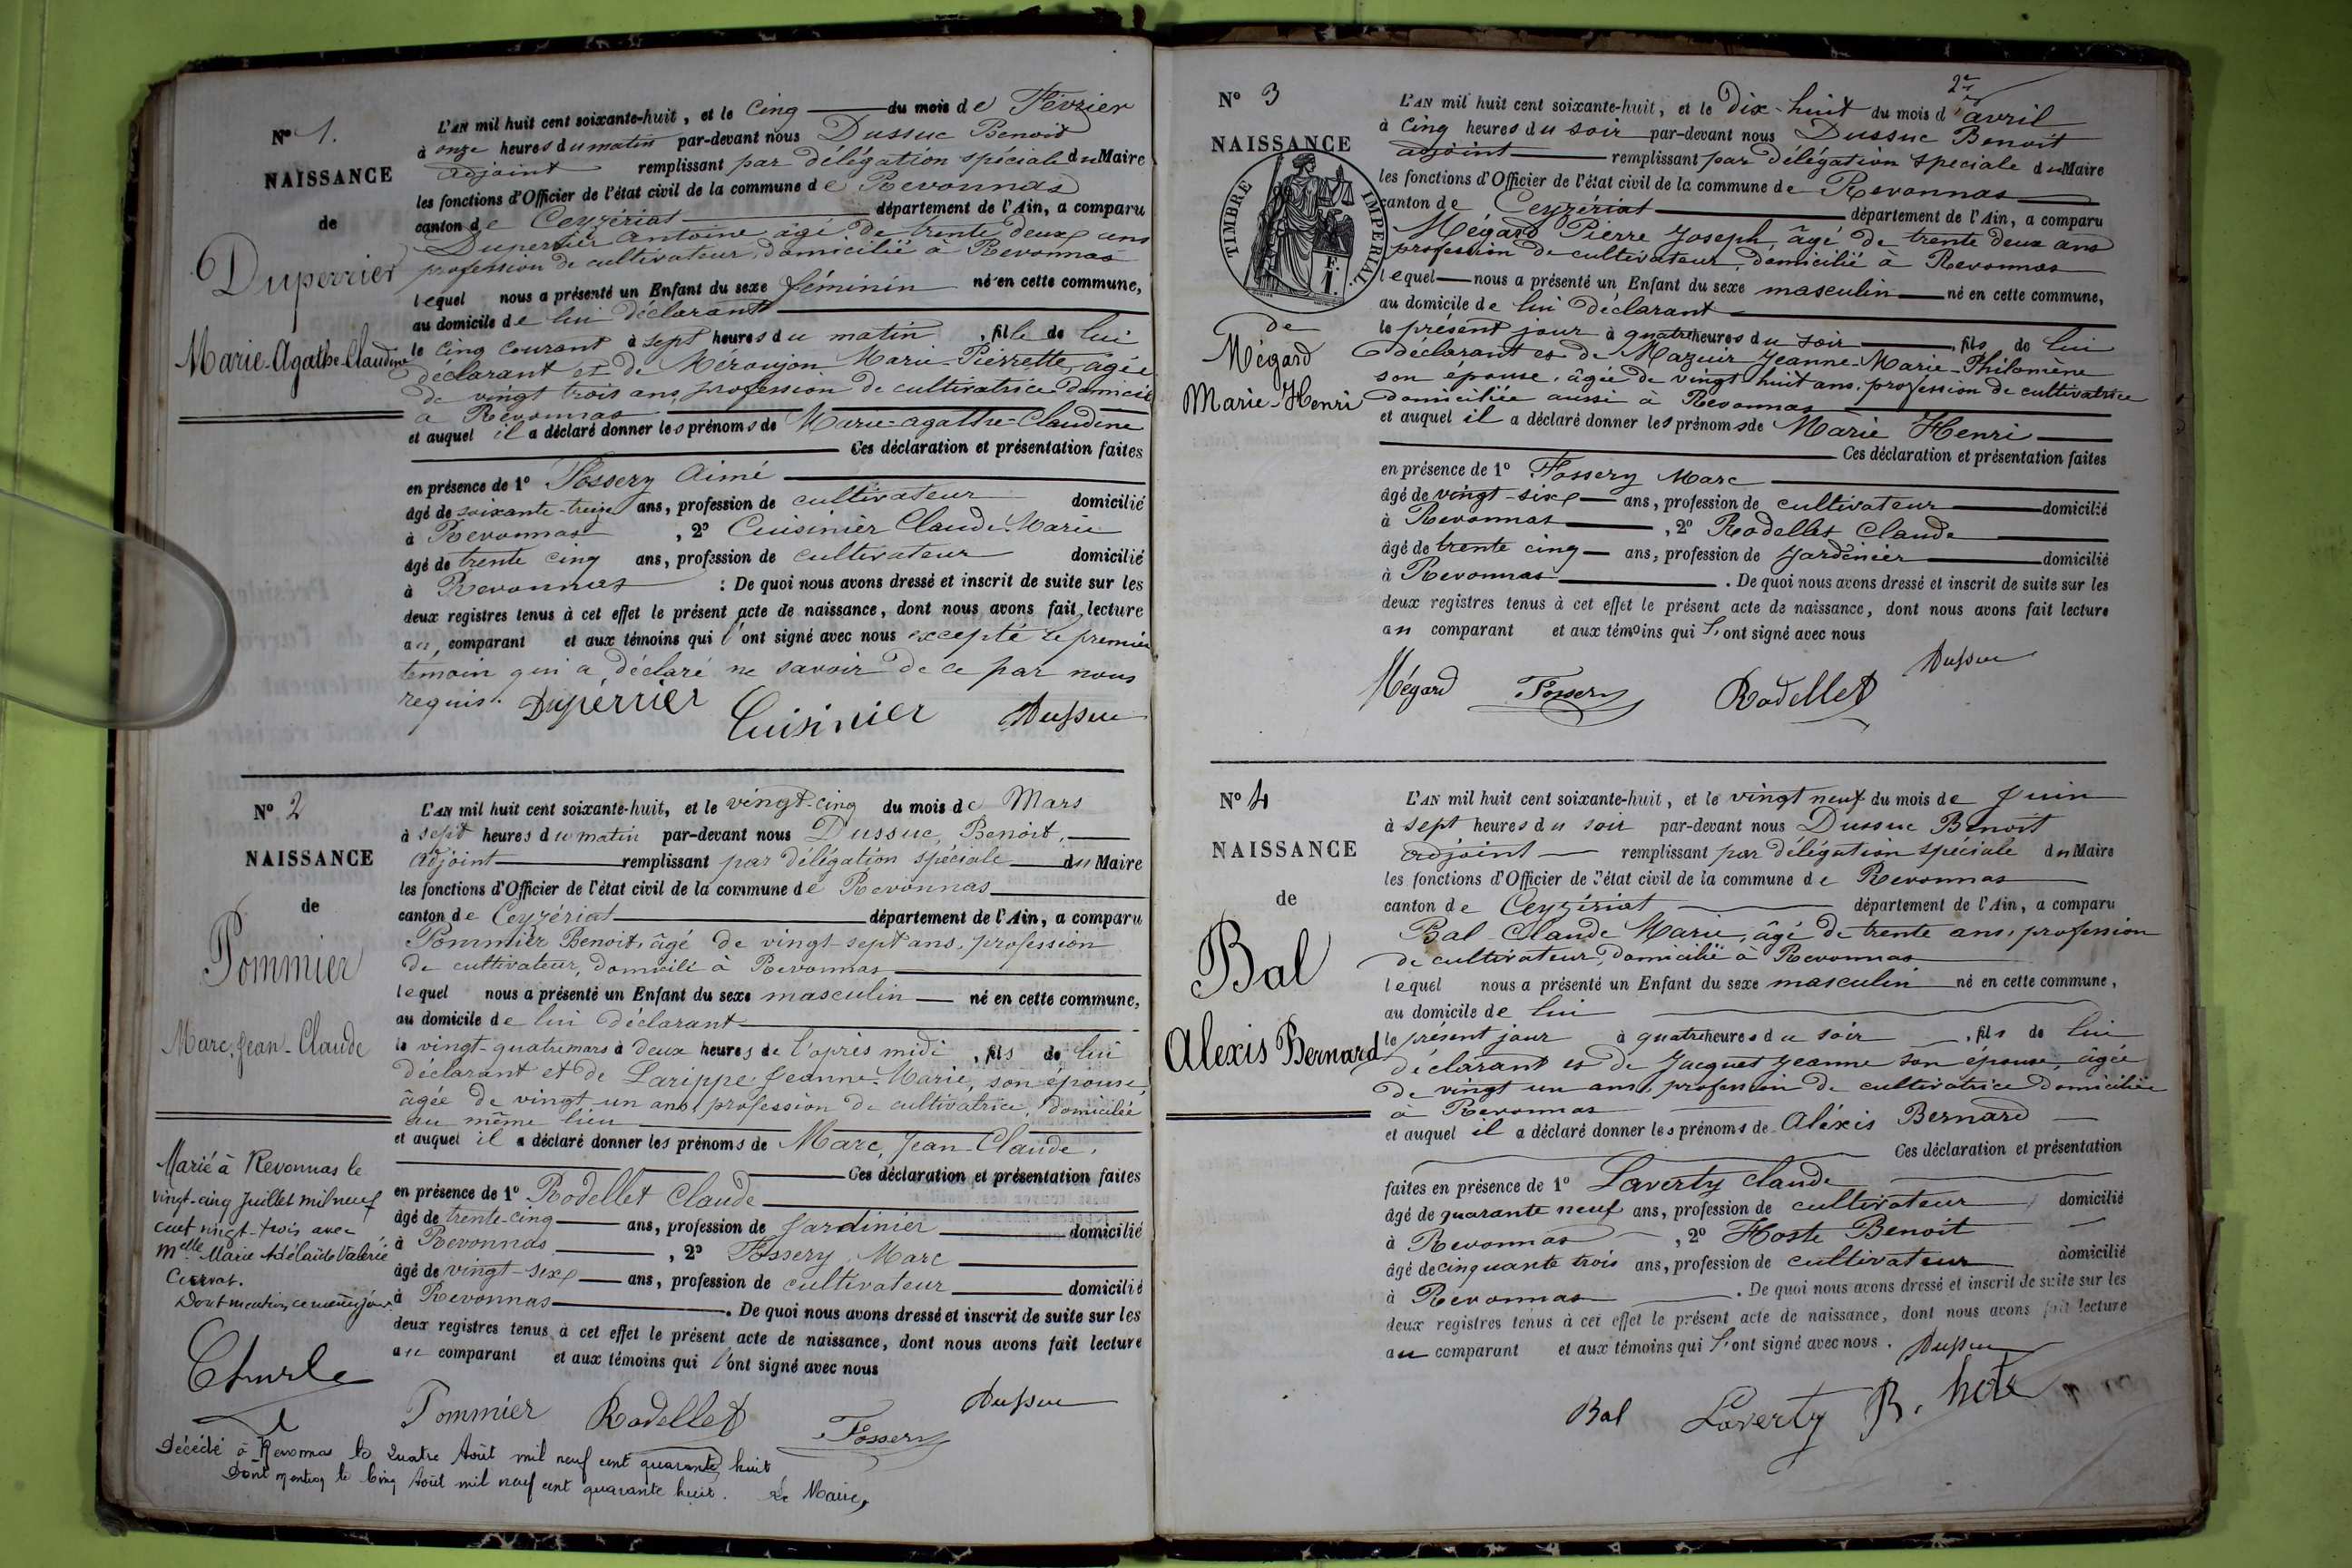 N° 1.
NAISSANCE
de
Duperrier
Marie-Agathe-Claudine
L'AN mil huit cent soixante-huit, et le Cinq du mois de Février
à onze heures du matin par-devant nous Dussuc Benoit
adjoint remplissant par délégation spéciale du Maire
les fonctions d'Officier de l'état civil de la commune de Revonnas
canton de Ceyzériat département de l'Ain, a comparu
Duperrier Antoine âgé de trente deux ans
profession de cultivateur, domicilié à Revonnas
lequel nous a présenté un Enfant du sexe féminin né en cette commune,
au domicile de lui déclarant
le cinq courant à sept heures du matin, fille de lui
déclarant et de Méroujon Marie-Pierrette, âgée
de vingt trois ans, profession de cultivatrice domicilié
à Revonnas
et auquel il a déclaré donner les prénoms de Marie-agathe-Claudine
Ces déclaration et présentation faites
en présence de 1° Fossery Aimé
âgé de soixante-treize ans, profession de cultivateur domicilié
à Revonnas, 2° Cuisinier Claude Marie
âgé de trente cinq ans, profession de cultivateur domicilié
à Revonnas : De quoi nous avons dressé et inscrit de suite sur les
deux registres tenus à cet effet le présent acte de naissance, dont nous avons fait lecture
au comparant et aux témoins qui l'ont signé avec nous excepté le premier
témoin qui a déclaré ne savoir de ce par nous
requis.
Duperrier Cuisinier Dussuc
N° 2
NAISSANCE
de
Pommier
Marc, Jean-Claude
L'AN mil huit cent soixante-huit, et le vingt-cinq du mois de Mars
à sept heures du matin par-devant nous Dussuc, Benoit,
adjoint remplissant par délégation spéciale du Maire
les fonctions d'Officier de l'état civil de la commune de Revonnas
canton de Ceyzériat département de l'Ain, a comparu
Pommier Benoit, âgé de vingt-sept ans, profession
de cultivateur, domicilié à Revonnas
lequel nous a présenté un Enfant du sexe masculin né en cette commune,
au domicile de lui déclarant
le vingt-quatre mars à deux heures de l'après midi, fils de lui
déclarant et de Larippe Jeanne-Marie, son épouse,
âgée de vingt-un ans, profession de cultivatrice, domiciliée
au même lieu
et auquel il a déclaré donner les prénoms de Marc, Jean-Claude.
Ces déclaration et présentation faites
en présence de 1° Rodellet Claude
âgé de trente-cinq ans, profession de Jardinier domicilié
à Revonnas, 2° Fossery Marc
âgé de vingt-six ans, profession de cultivateur domicilié
à Revonnas. De quoi nous avons dressé et inscrit de suite sur les
deux registres tenus à cet effet le présent acte de naissance, dont nous avons fait lecture
au comparant et aux témoins qui l'ont signé avec nous
Pommier Rodellet Fossery Dussuc
Marié à Revonnas le
vingt-cinq Juillet mil neuf
cent vingt-trois avec
Melle Marie Adélaïde Valérie
Dont mention ce même jour.
Décédé à Revonnas le Quatre Août mil neuf cent quarante huit
Dont mention le Cinq Août mil neuf cent quarante huit. Le Maire,
N° 3
NAISSANCE
TIMBRE IMPERIAL
1 F.
de
Mégard
Marie-Henri
L'AN mil huit cent soixante-huit, et le Dix-huit du mois d'avril
à Cinq heures du soir par-devant nous Dussuc Benoit
adjoint remplissant par délégation spéciale du Maire
les fonctions d'Officier de l'état civil de la commune de Revonnas
canton de Ceyzériat département de l'Ain, a comparu
Mégard Pierre Joseph, âgé de trente deux ans
profession de cultivateur, domicilié à Revonnas
lequel nous a présenté un Enfant du sexe masculin né en cette commune,
au domicile de lui déclarant
le présent jour à quatre heures du soir, fils de lui
déclarant et de Mazuir Jeanne-Marie-Philomène
son épouse, âgée de vingt huit ans, profession de cultivatrice
domiciliée aussi à Revonnas
et auquel il a déclaré donner les prénoms de Marie Henri
Ces déclaration et présentation faites
en présence de 1° Fossery Marc
âgé de vingt-six ans, profession de cultivateur domicilié
à Revonnas, 2° Rodellet Claude
âgé de trente cinq ans, profession de Jardinier domicilié
à Revonnas. De quoi nous avons dressé et inscrit de suite sur les
deux registres tenus à cet effet le présent acte de naissance, dont nous avons fait lecture
au comparant et aux témoins qui l'ont signé avec nous
Mégard Fossery Rodellet Dussuc
N° 4
NAISSANCE
de
Bal
Alexis Bernard
L'AN mil huit cent soixante-huit, et le vingt neuf du mois de Juin
à sept heures du soir par-devant nous Dussuc Benoit
adjoint remplissant par délégation spéciale du Maire
les fonctions d'Officier de l'état civil de la commune de Revonnas
canton de Ceyzériat département de l'Ain, a comparu
Bal Claude Marie, âgé de trente ans, profession
de cultivateur, domicilié à Revonnas
lequel nous a présenté un Enfant du sexe masculin né en cette commune,
au domicile de lui
le présent jour à quatre heures du soir, fils de lui
déclarant et de Jacquet Jeanne son épouse, âgée
de vingt un ans, profession de cultivatrice domiciliée
à Revonnas
et auquel il a déclaré donner les prénoms de Aléxis Bernard
Ces déclaration et présentation
faites en présence de 1° Laverty Claude
âgé de quarante neuf ans, profession de cultivateur domicilié
à Revonnas, 2° Hoste Benoit
âgé de cinquante trois ans, profession de cultivateur domicilié
à Revonnas. De quoi nous avons dressé et inscrit de suite sur les
deux registres tenus à cet effet le présent acte de naissance, dont nous avons fait lecture
au comparant et aux témoins qui l'ont signé avec nous. Dussuc
Bal Laverty